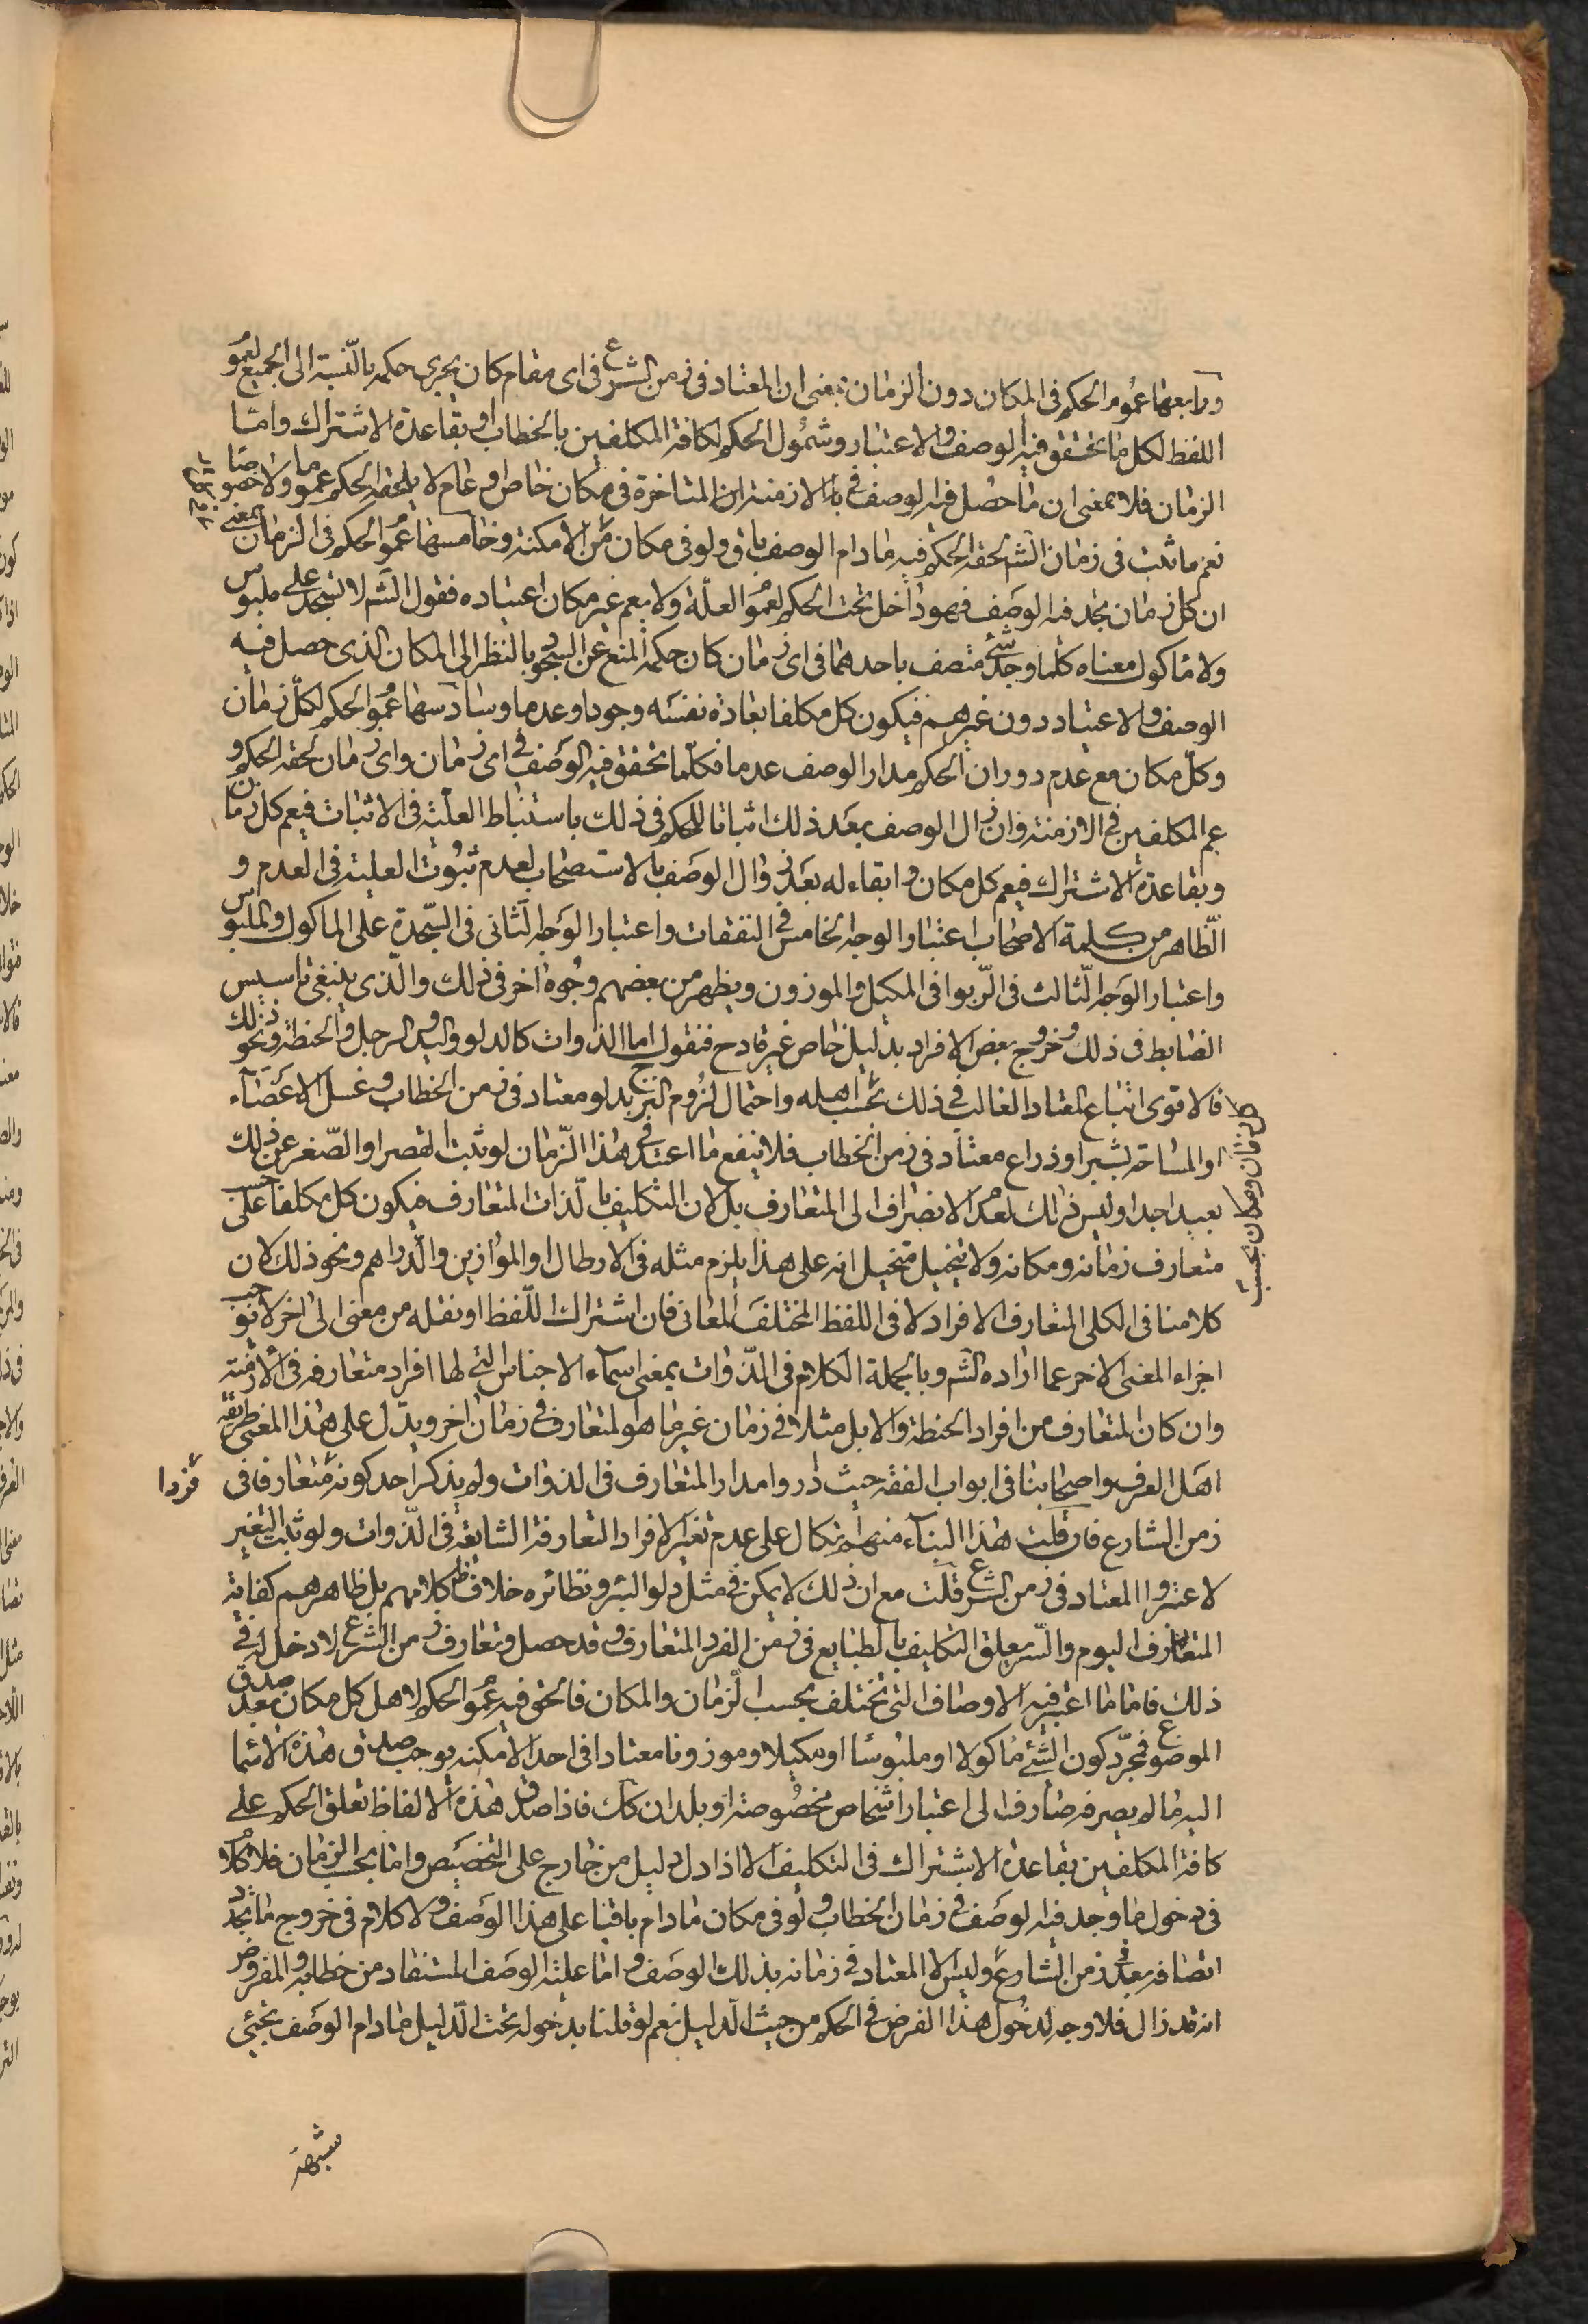 ورابعها عموم الحكم فى المكان دون الزمان بمعنى ان المعتاد فى زمن الشرع فى اى مقام كان يجرى حكمه بالنسبة الى الجميع لعموم
اللفظ لكل ما تحقق فيه الوصف والاعتبار وشمول الحكم لكافة المكلفين بالخطاب او بقاعدة الاشتراك واما
الزمان فلا بمعنى ان ما حصل فيه الوصف فى الازمنة المتاخرة فى مكان خاص او عام لا يلحقه الحكم عموما ولا خصوصا
نعم ما ثبت فى زمان الشم لحقه الحكم فيه ما دام الوصف باق ولو فى مكان من الامكنة وخامسها عموم الحكم فى الزمان بمعنى
ان كل زمان تجدد فيه الوصف فهو داخل تحت الحكم لعموم العلة ولا يعم غير مكان اعتياده فقول الشم لا تسجد على ملبوس
ولا ماكول معناه كلما وجد شئ متصف باحدهما فى اى زمان كان حكمه المنع عن السجود بالنظر الى المكان الذى حصل فيه
الوصف والاعتياد دون غيرهم فيكون كل مكلفا بعادة نفسه وجودا وعدما وسادسها عموم الحكم لكل زمان
وكل مكان مع عدم دوران الحكم مدار الوصف عدما فكلما تحقق فيه الوصف فى اى زمان واى زمان لحقه الحكم و
عم المكلفين فى الازمنة وان زال الوصف بعد ذلك اثباتا للحكم فى ذلك باستنباط العلية فى الاثبات فيعم كل زمان
وبقاعدة الاشتراك فيعم كل مكان وابقاء له بعد زوال الوصف بالاستصحاب لعدم ثبوت العلية فى العدم و
الظاهر من كلمة الاصحاب اعتبار الوجه الخامس فى النفقات واعتبار الوجه الثانى فى السجدة على الماكول والملبوس
واعتبار الوجه الثالث فى الربوا فى المكيل والموزون ويظهر من بعضهم وجوه اخر فى ذلك والذى ينبغى تاسيس
الضابط فى ذلك وخروج بعض الافراد بدليل خاص غير قادح فنقول اما الذوات كالدلو واليد والرجل والحنطة ونحو ذلك
فالاقوى اتباع المعتاد الغالب فى ذلك بحسب اهله واحتمال لزوم النزح بدلو معتاد فى زمن الخطاب وغسل الاعضاء
كل زمان ومكان بحسب
او المساحة بشبر او ذراع معتاد فى زمن الخطاب فلا ينفع ما اعتيد فى هذا الزمان لو ثبت القصر او الصغر عن ذلك
بعيد جدا وليس ذلك لعدم الانصراف الى المتعارف بل لان التكليف بالذات المتعارف فيكون كل مكلفا على حسب
متعارف زمانه ومكانه ولا يتخيل متخيل انه على هذا يلزم مثله فى الارطال والموازين والدراهم ونحو ذلك لان
كلامنا فى الكلى المتعارف الافراد لا فى اللفظ المختلف المعانى فان اشتراك اللفظ او نقله من معنى الى اخر لا يوجب
اجزاء المعنى الاخر عما اراده الشم وبالجملة الكلام فى الذوات بمعنى اسماء الاجناس التى لها افراد متعارفه فى الازمنة
وان كان المتعارف من افراد الحنطة والابل مثلا فى زمان غير ما هو المتعارف فى زمان اخر ويدل على هذا المعنى طريقة
اهل العرف واصحابنا فى ابواب الفقه حيث داروا مدار المتعارف فى الذوات ولم يذكر احد كونه متعارفا فى
فردا
زمن الشارع فان قلت هذا البناء منهم اتكال على عدم تغير الافراد المتعارفة الشايعة فى الذوات ولو ثبت التغير
لاعتبروا المعتاد فى زمن الشرع قلت مع ان ذلك لا يمكن فى مثل دلو البئر ونظائره خلاف ظ كلامهم بل ظاهرهم كفاية
المتعارف اليوم والسر تعلق التكاليف بالطبايع فى ضمن الفرد المتعارف وقد حصل وتعارف زمن الشرع لا دخل له فى
ذلك فاما ما اعتبر فيه الاوصاف التى تختلف بحسب الزمان والمكان فالحق فيه عموم الحكم لاهل كل مكان بعد صدق
الموضوع فمجرد كون الشئ ماكولا او ملبوسا او مكيلا وموزونا معتادا فى احد الامكنه يوجب صدق هذه الاسماء
اليه ما لم يصرفه صارف الى اعتبار اشخاص مخصوصة او بلدان كك فاذا صدق هذه الالفاظ تعلق الحكم على
كافة المكلفين بقاعدة الاشتراك فى التكليف الا اذا دل دليل من خارج على التخصيص واما بحسب الزمان فلا كلام
فى دخول ما وجد فيه الوصف فى زمان الخطاب ولو فى مكان ما دام باقيا على هذا الوصف ولا كلام فى خروج ما تجدد
اتصافه بعد زمن الشارع وليس الا المعتاد فى زمانه بذلك الوصف و اما علية الوصف المستفاد من خطابه والمفروض
انه قد زال فلا وجه لدخول هذا الفرض فى الحكم من حيث الدليل نعم لو قلنا بدخوله تحت الدليل ما دام الوصف يجيئ